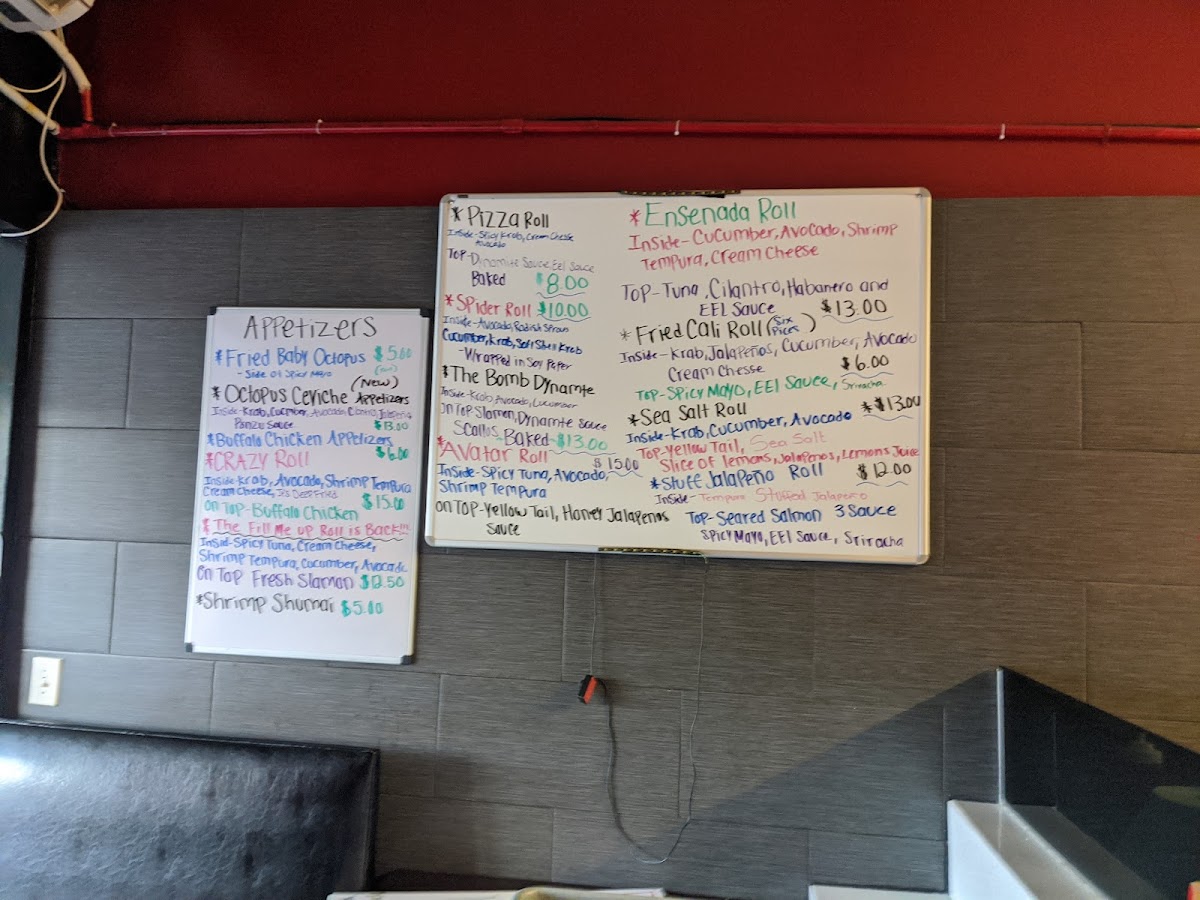 APPetizers
*Fried Baby Octopus $5.00
- Side of Spicy Mayo
*Octopus Ceviche (New) Appetizers
Inside-Krab, Cucmber, Avocado, Cilantro, Jalapeño
Ponzu Sauce $13.00
*Buffalo Chicken Appetizers
$6.00
*CRAZY Roll
Inside-Krab, Avocado, Shrimp Tempura
Cream Cheese, Its Deep Fried
on Top-Buffalo Chicken $15.00
* The Fill Me up Roll is Back!!!
Insid-Spicy Tuna, Cream Cheese,
Shrimp Tempura, Cucumber, Avocado
on Top Fresh Slamon $12.50
*Shrimp Shumai $5.00
* Pizza Roll
Inside-Spicy Krab, Cream Chesse
Avocado
Top-Dinamite Sauce, Eel Sauce
Baked $8.00
*SPider Roll $10.00
Inside-Avocado, Radish Sproun
Cucumber, Krab, Soft Shell Krab
-Wrapped in Soy Paper
*The Bomb Dynamte
Inside-Krab, Avocado, Cucumber
on Top Slamon, Dynamite Sauce
Scallos-Baked-$13.00
*AVatar Roll $15.00
Inside-Spicy Tuna, Avocado,
Shrimp Tempura
on Top-Yellow Tail, Honey Jalapenos
Sauce
*Ensenada Roll
Inside-Cucumber, Avocado, Shrimp
Tempura, Cream Cheese
Top-Tuna, Cilantro, Habanero and
EEl Sauce $13.00
*Fried Cali Roll (Six Pices)
Inside-Krab, Jalapeños, Cucumber, Avocado
Cream Chesse $6.00
Top-Spicy Mayo, EEl Sauce, Sriracha
*Sea Salt Roll *$13.00
Inside-Krab, Cucumber, Avocado
Top-Yellow Tail, Sea Salt
Slice of lemons, Jalapeños, Lemons Juice
*Stuff Jalapeño Roll $12.00
Inside-Tempura Stuffed Jalapeño
Top-Seared Salmon 3 Sauce
Spicy Mayo, EEl Sauce, Sriracha